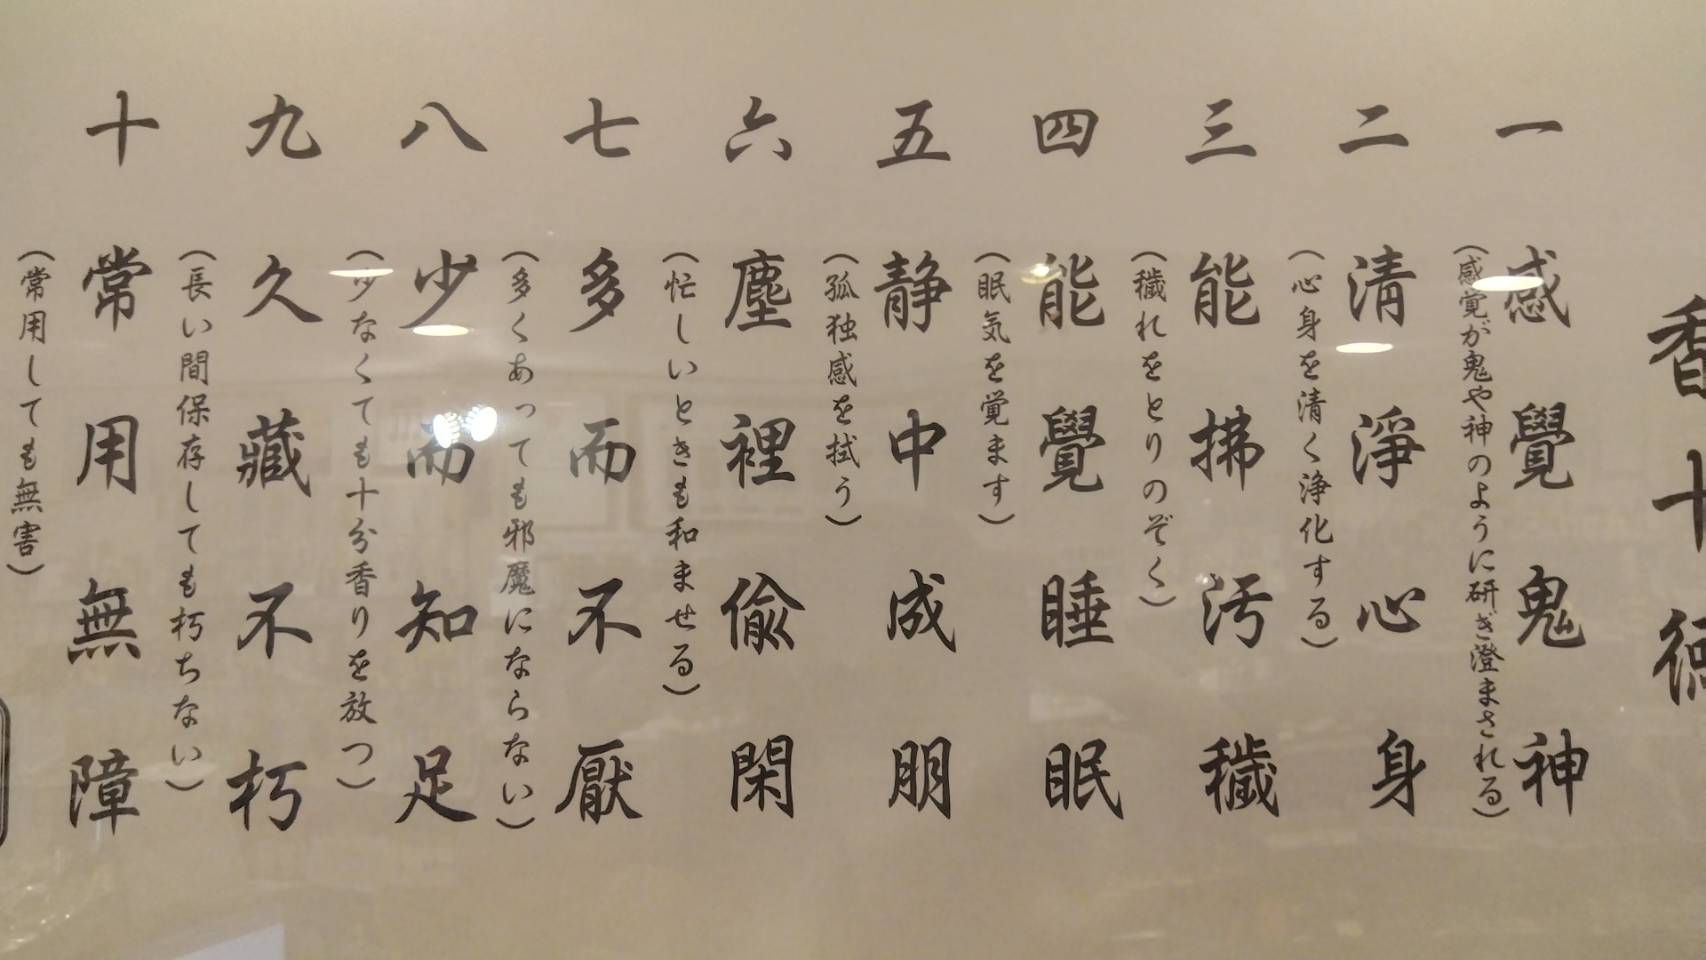 香十徳
一 感覺鬼神
(感覚が鬼や神のように研ぎ澄まされる)
二 清淨心身
(心身を清く浄化する)
三 能拂汚穢
(穢れをとりのぞく)
四 能覺睡眠
(眠気を覚ます)
五 静中成朋
(孤独感を拭う)
六 塵裡偸閑
(忙しいときも和ませる)
七 多而不厭
(多くあっても邪魔にならない)
八 少而知足
(少なくても十分香りを放つ)
九 久藏不朽
(長い間保存しても朽ちない)
十 常用無障
(常用しても無害)